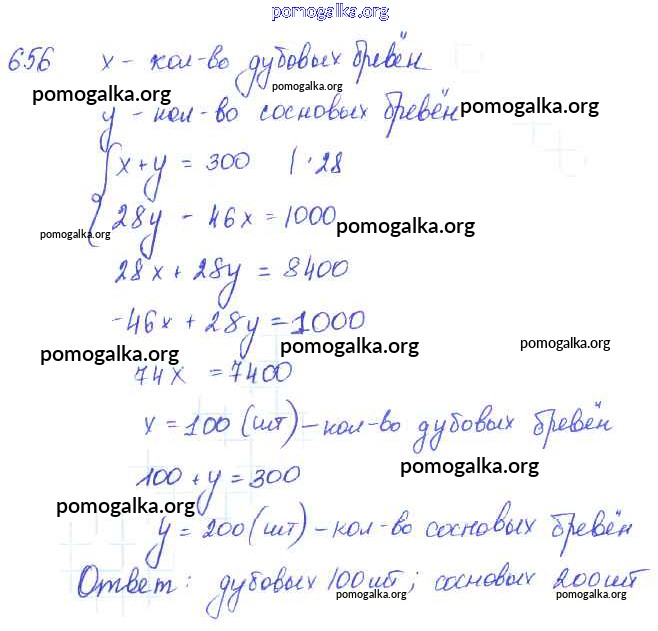 pomogalka.org
656 x - кол-во дубовых бревён
pomogalka.org pomogalka.org
y - кол-во сосновых бревён pomogalka.org
x + y = 300 | · 28
28y - 46x = 1000 pomogalka.org
pomogalka.org
28x + 28y = 8400
-46x + 28y = 1000
pomogalka.org pomogalka.org pomogalka.org
74x = 7400
x = 100 (шт) - кол-во дубовых бревён
pomogalka.org
100 + y = 300
pomogalka.org
y = 200 (шт) - кол-во сосновых бревён
Ответ: дубовых 100 шт; сосновых 200 шт
pomogalka.org pomogalka.org